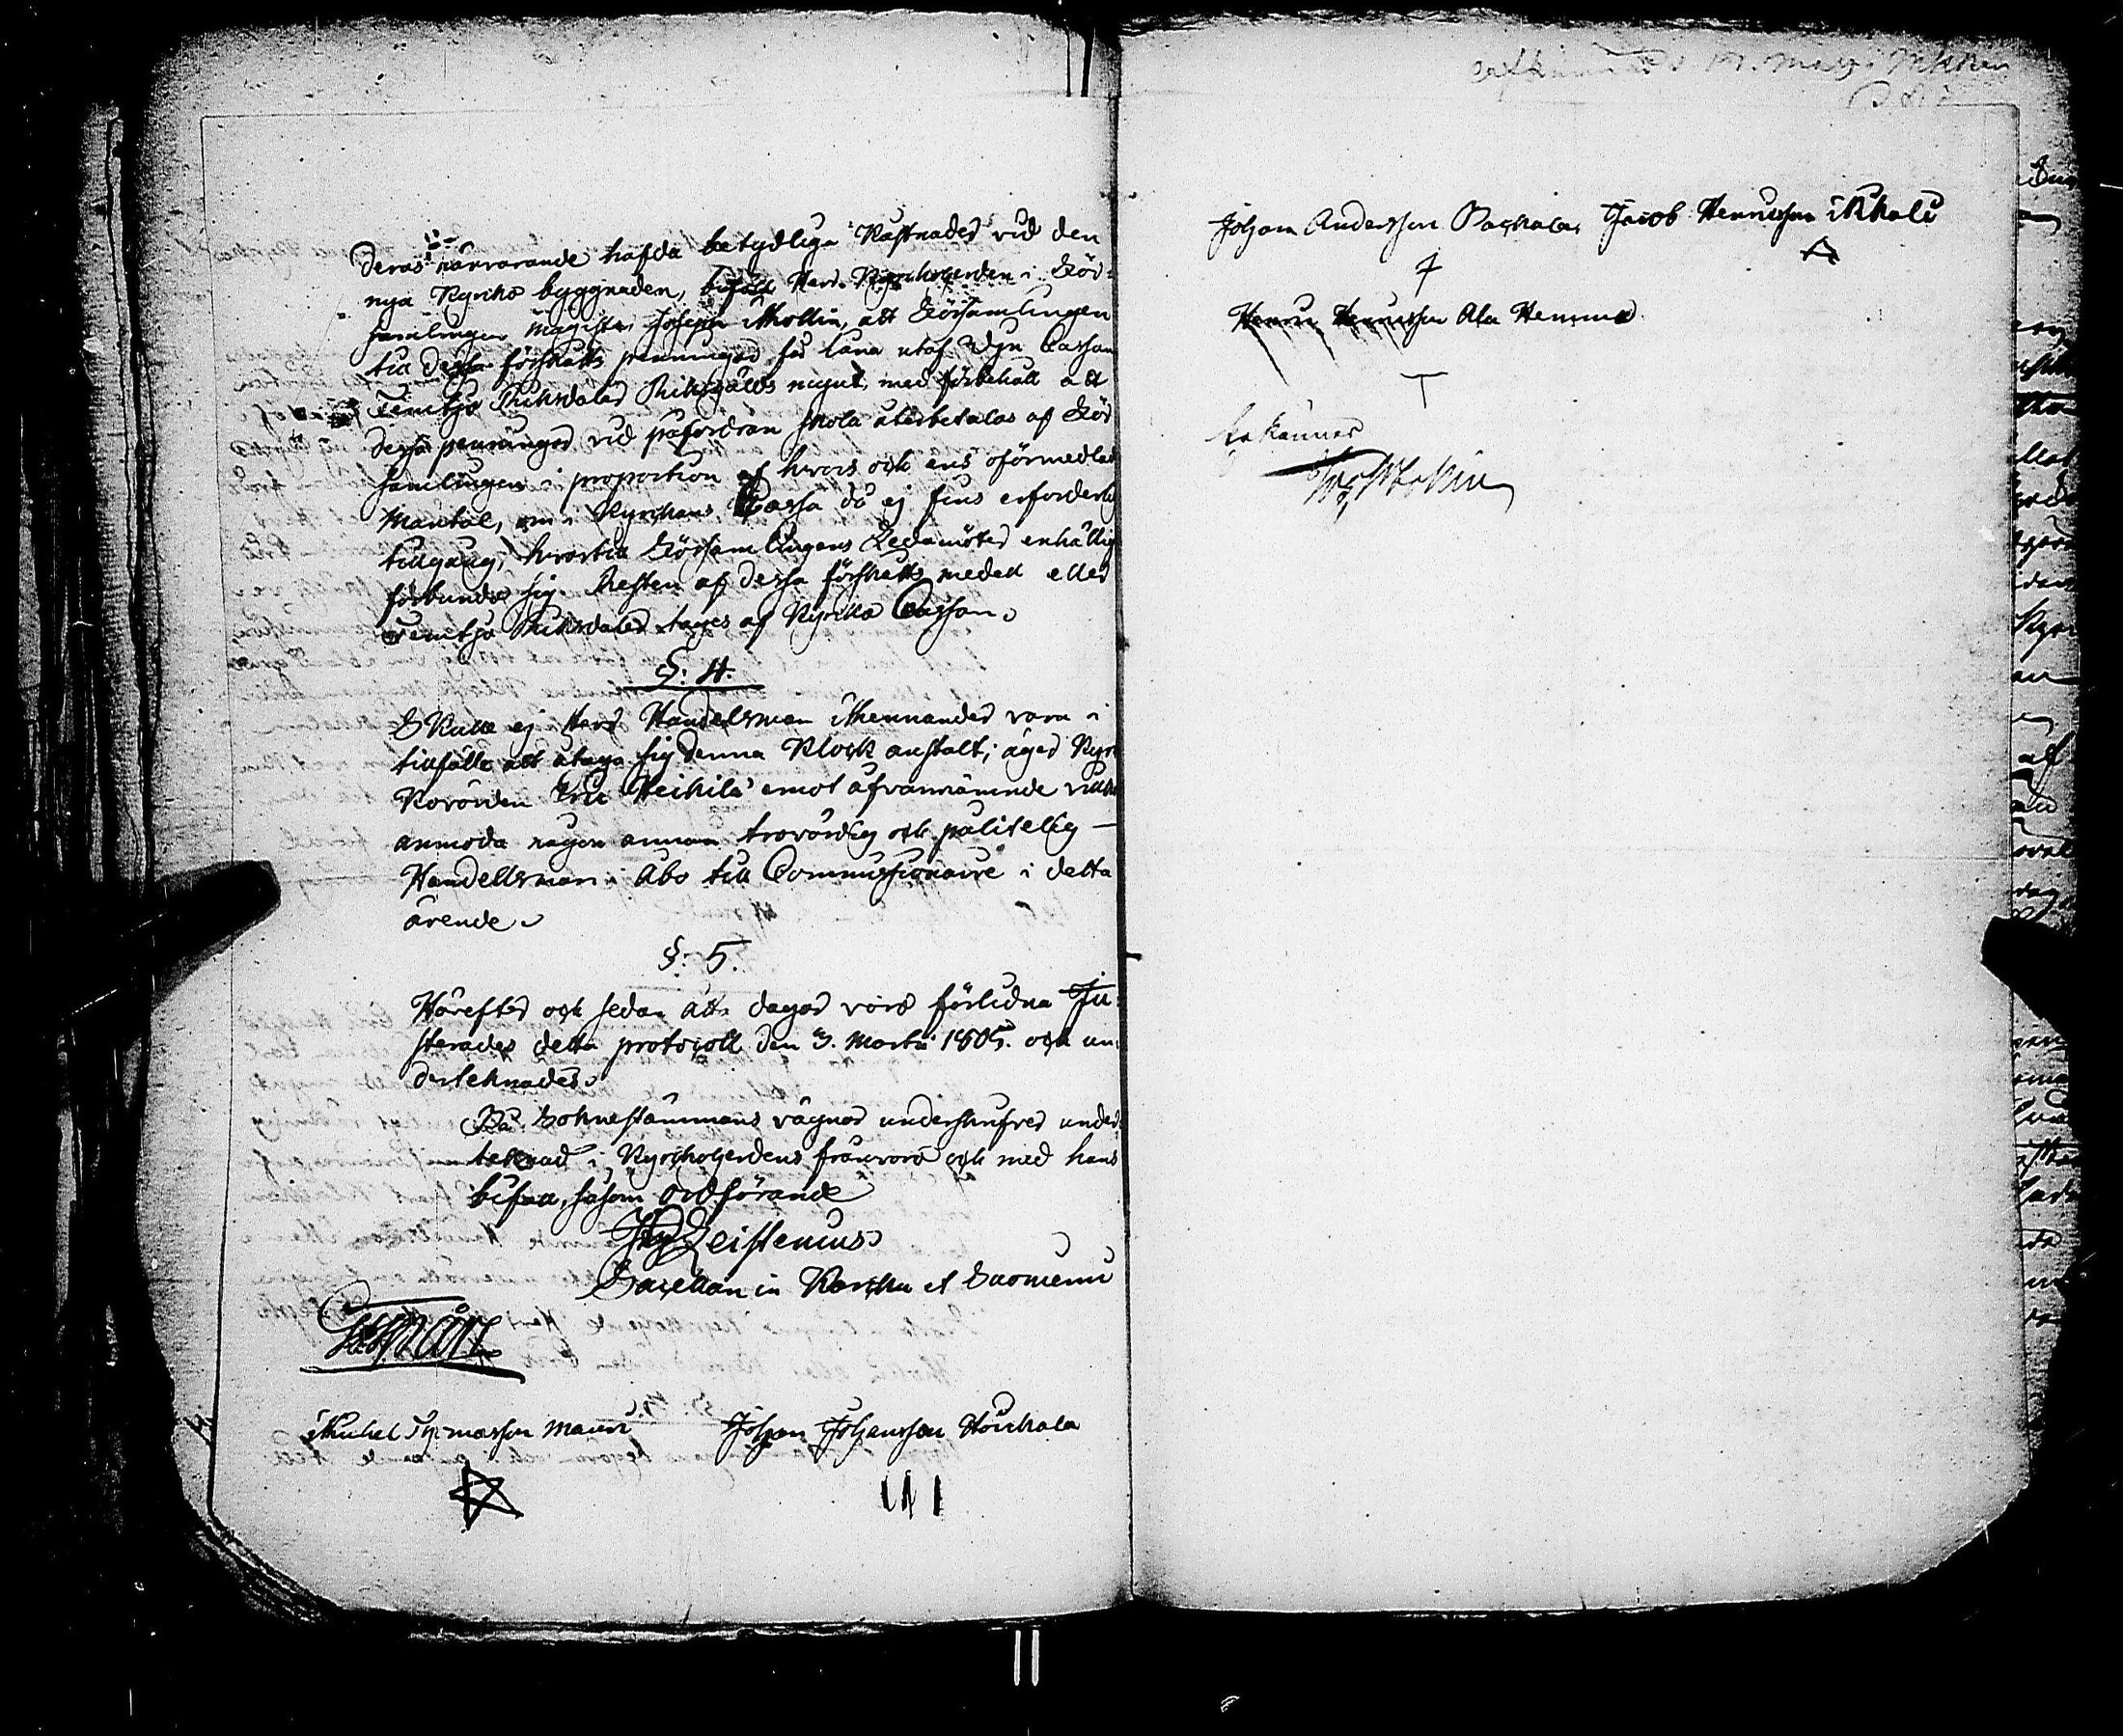 deras närvarande hafda betydliga Kostnader vid den
nya Kyrcko byggnaden, biföll Herr Kyrckoherden i För-
samlingen Magister Joseph Mollin, att Församlingen
till dessa förskotts penningar få låna utaf Cassan
Femtjo Riksdaler Riksgälds mynt, med förbehåll att
dessa penningar vid påfordran skola återbetalas af För
samlingen i proportion af hvars och ens oförmedlad
Mantal, om i Kyrckans Cassa då ej fins erforderlig
tillgång, hvartill Församlingens Ledamöter enhällig
förbundo sig. Resten af dessa förskotts medell eller
Femtjo Riksdaler tages af Kyrcko Cassan.
§: 4.
Skulle ej Herr Handelsman vara i
tillfälle att åtaga sig denna Klock anstalt; äger Kyrk
Kovärden Eric Heikilä emot ofvannämnde
anmoda någon annan trovärdig och pålitelig
Handellsman i Åbo till Commissionaire i detta
ärende.
§: 5.
Härefter och sedan åtta dagar voro förlidna Ju-
sterades detta protocoll den 3. Martii 1805. och un-
dertecknades.
På Soknestämmans vägnar underskrifver under-
teknad i Kyrckoherdens frånvaro och med hans
bifall, såsom Ordförande
Leistenius
Sacellan in Karcku et Suomenni
Michel Thomasson Mauri
Johan Johansson Houkala
Johan Andersson Jacob Henricsson
Henric Henricsson Ala Hemmo